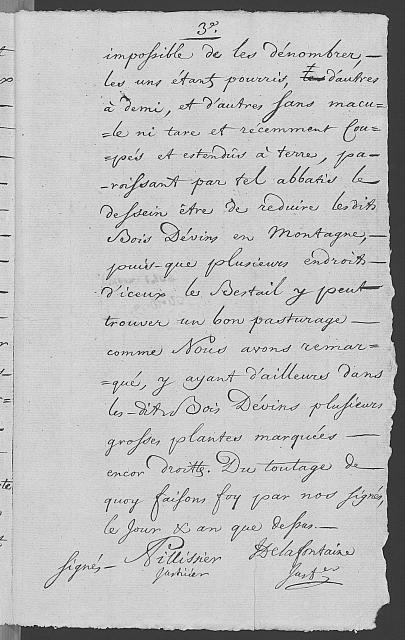 3.e
impossible de les dénombrer,—
les uns étant pourris, d'autres
à demi, et d'autres sans macu=
=le ni tare et recemment Cou=
=pés et estendûs à terre, pa-
-roissant par tel abbatis le
dessein être de reduire lesdits
Bois Dévins en Montagne,—
puis-que plusieurs endroits—
d'iceux le Bestail y peut
trouver un bon pasturage—
comme Nous avons remar=
=qué, y ayant d'ailleurs dans
les-dits Bois Dévins plusieurs
grosses plantes marquées—
encor droitte. Du toutage de
quoy faisons foy par nos signés,
le Jour & an que dessus.—
signés— Pillissier Delafontaine
justicier Just.er